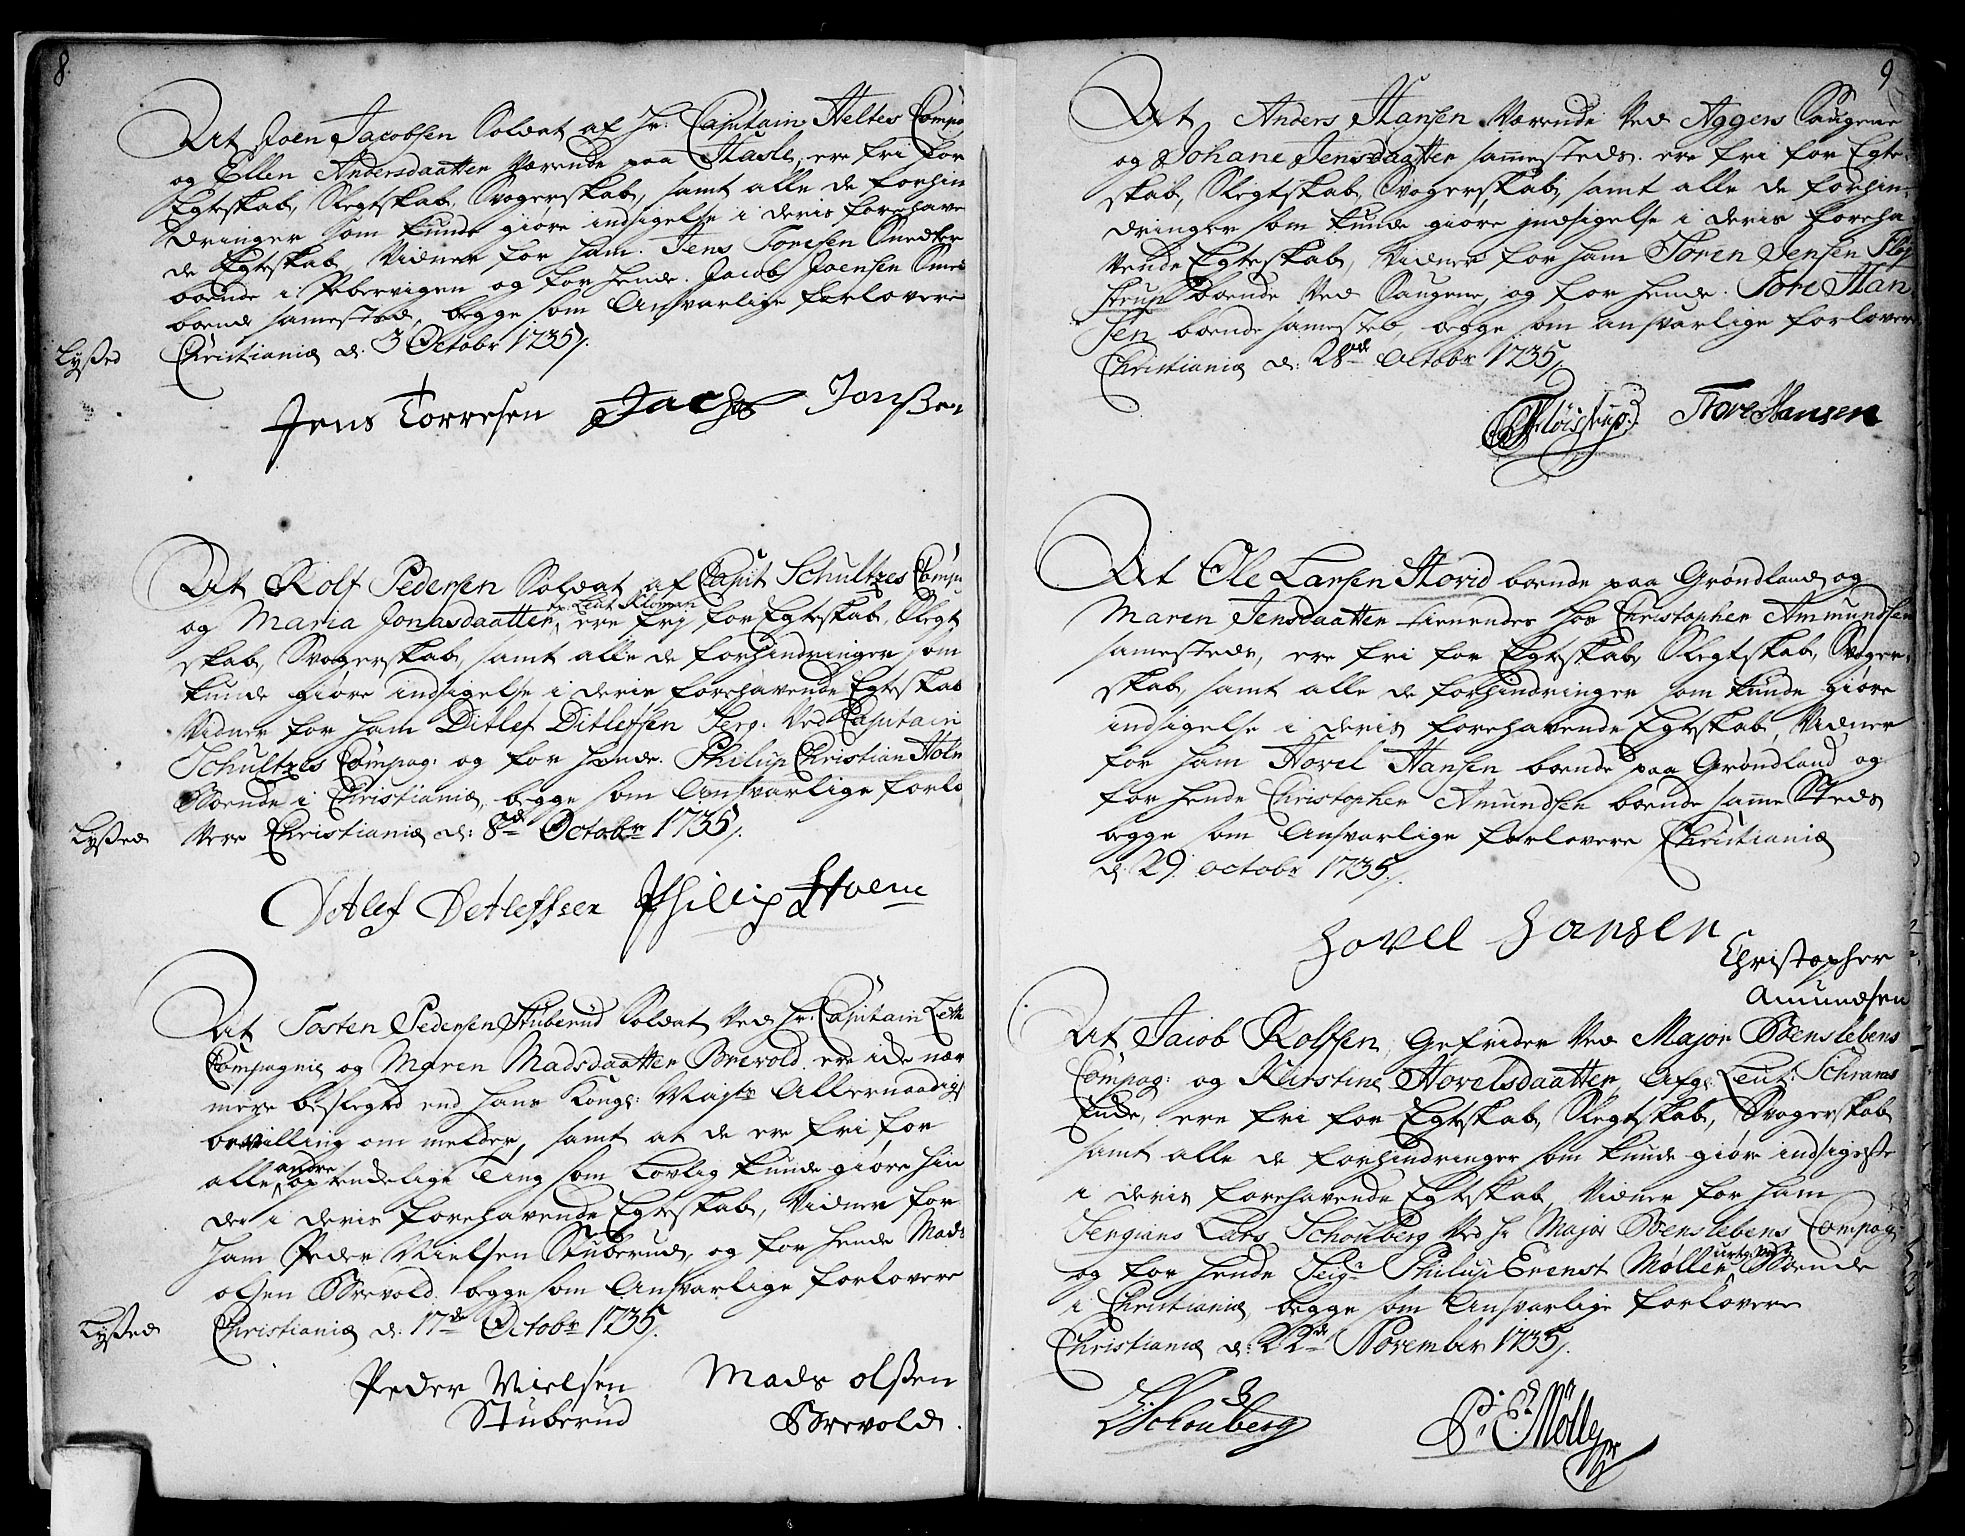 8.
At Joen Jacobsen Soldat af Hr. Capitain Heltes Compa
og Ellen Andersdaatter Værende paa Hasle, ere fri for
Egteskab, Slegtskab, Svogerskab, samt alle de forhin
dringer som kunde giøre indsigelse i deris forehave
de Egteskab, Vidner for ham. Jens Toresen Snedker
boende i Pebervigen og for hende. Jacob Joensen Smed
boende samested, begge som Ansvarlige forlovere
Lyßed
Christiania d. 3 Octobr 1735/.
Jens Torresen Jachob Jonßen
At Rolf Pedersen Soldat af Capit Schultzes Comp
og Maria Jonasdaatter, ere fry for Egteskab, Slegt
skab, Svogerskab, samt alle de forhindringer som
kunde giøre indsigelse i deris forehavende Egteskab
Vidner for ham Ditlef Ditlefsen Serg: Ved Capitain
Schultzes Compag: og for hende. Philip Christian Holm
Boende i Christiania, begge som Ansvarlige forlo
Lyßed
vere Christiania d: 8de Octobr 1735/.
Detlef Detleffsen Phillip Holm
At Tosten Pedersen Stuberud Soldat Ved Hr. Capitain Leth
Compagnie og Maren Madsdaatter Brevold. ere icke nær
mere beslegted end hans Kongl: Mayts Allernaadigs
bevilling om melder, samt at de ere fri for
alle andre optendelige Ting som Lovlig kunde giøre hin
der i deris forehavende Egteskab, Vidner for
ham Peder Nielsen Stuberud, og for hende Mads
olsen Brevold. begge som Ansvarlige forlovere
Lyßed
Christiania d. 17de Octobr 1735/.
Peder Nielsen Mads olßen
Stuberud Brevold.
9
At Anders Hansen Værende Ved Aggers Saugene
og Johane Jensdaatter sammesteds. ere fri for Egte-
skab, Slegtskab, Svogerskab, samt alle de forhin-
dringer som kunde giøre jndsigelse i deris foreha-
vende Egteskab, Vidner for ham Sören Jensen Fløj
strup boende Ved Saugene, og for hende. Tore Han
sen boende samested, begge som ansvarlige forlovere
Christiania d: 28de Octobr 1735/.
Fløistrup. Tore Hansen
At Ole Larsen Hovid boende paa Grøndland og
Maren Jensdaatter tienendes hos Christopher Ammundsen
samesteds, ere fri for Egteskab, Slegtskab, Svoger-
skab, samt alle de forhindringer som kunde giøre
indsigelse i deris forehavende Egteskab, Vidner
for ham Hovel Hansen boende paa Grøndland og
for hende Christopher Amundsen boende samme Steds
begge som Ansvarlige forlovere Christiania
d. 29. octobr 1735/.
Hovel Hansen Christopher
Amundsen
At Jacob Rolfsen, Gefrider Ved Major Bensslebens
Compag: og Kirstine Hovelsdaatter, Afg: Leut: Schrams
Enke, ere fri for Egteskab, Slegtskab, Svogerskab
samt alle de forhindringer som kunde giøre indsigelse
i deris forehavende Egteskab, Vidner for ham
Sergians Lars Schouberg Ved Hr Major Bensslebens Compag:
og for hende Seigr Philip Ernst Møller Boende
i Christiania, begge som Ansvarlige forlovere
Christiania d: 22de November 1735/.
L Schouberg P: E: Møller